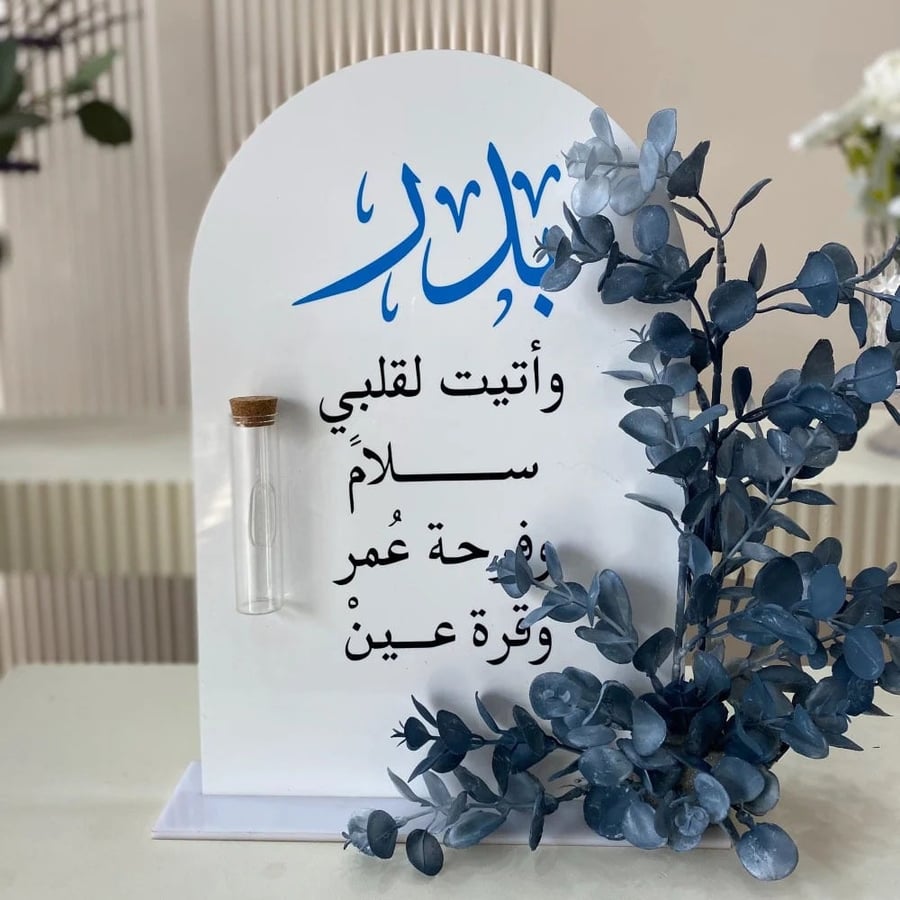 بدر
وأتيت لقلبي
ســـــلامً
وفرحة عُمر
وقرة عـينْ